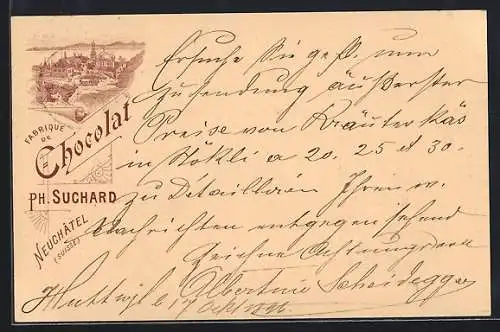 FABRIQUE
DE
Chocolat
PH. SUCHARD
NEUCHÂTEL
(SUISSE)
Ersuche Sie gefl. um
Zusendung äußerster
Preise von Kräuterkäs
in Stökli a 20. 25 et 30.
zu Detaillieren Ihren w.
Nachrichten entgegen sehend
zeichne Achtungsvoll
Albertine Scheidegger
Huttwyl